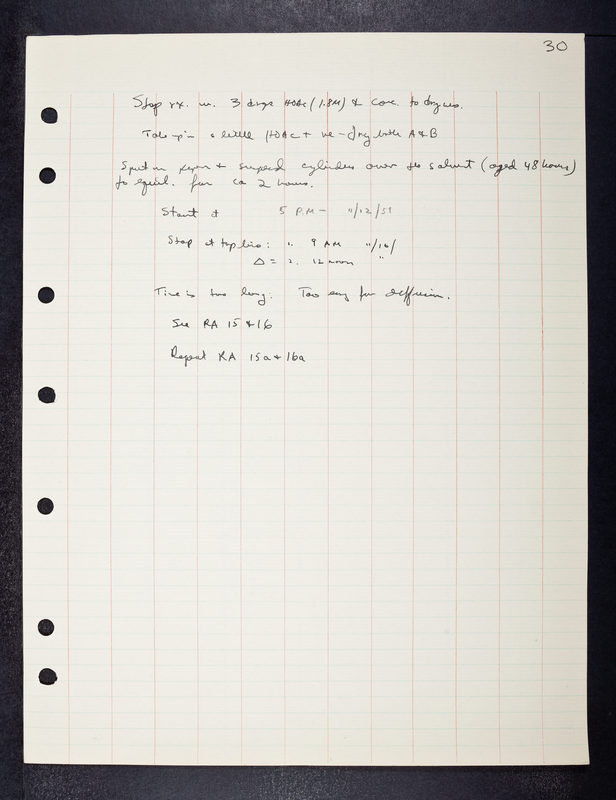 30
Stop rx. w. 3 drops HOAc (1.8M) & conc. to dryness.
Take up in a little HOAc + re-dry both A & B
Spot on paper & suspend cylinders over the solvent (aged 48 hours)
to equil. for ca 2 hours.
Start at 5 P.M - 11/12/59
Stop at top line: 9 AM 11/16/
Δ = 12 noon "
Time is too long. Too easy for diffusion.
See RA 15 & 16
Repeat RA 15a & 16a